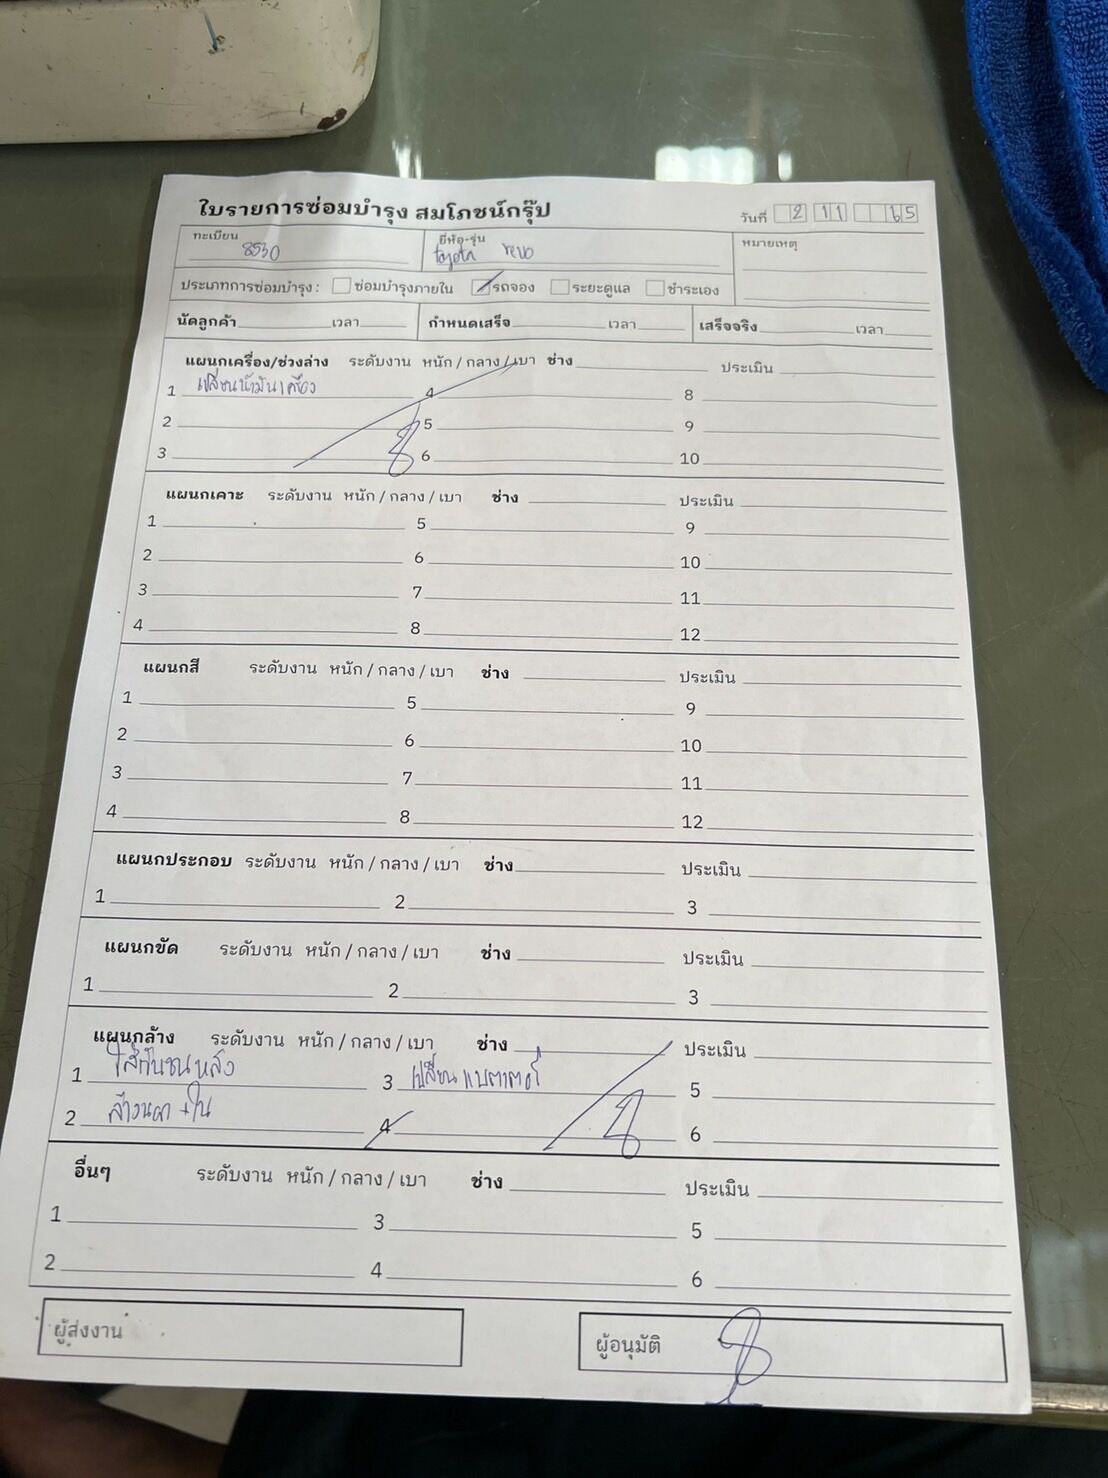 ใบรายการซ่อมบำรุง สมโภชน์กรุ๊ป
วันที่ 2 11 65
ทะเบียน 8530 ยี่ห้อ-รุ่น toyota revo หมายเหตุ
ประเภทการซ่อมบำรุง : ซ่อมบำรุงภายใน รถจอง ระยะดูแล ชำระเอง
นัดลูกค้า เวลา กำหนดเสร็จ เวลา เสร็จจริง เวลา
แผนกเครื่อง/ช่วงล่าง ระดับงาน หนัก / กลาง / เบา ช่าง ประเมิน
1 เปลี่ยนน้ำมันเครื่อง 4 8
2 5 9
3 6 10
แผนกเคาะ ระดับงาน หนัก / กลาง / เบา ช่าง ประเมิน
1 5 9
2 6 10
3 7 11
4 8 12
แผนกสี ระดับงาน หนัก / กลาง / เบา ช่าง ประเมิน
1 5 9
2 6 10
3 7 11
4 8 12
แผนกประกอบ ระดับงาน หนัก / กลาง / เบา ช่าง ประเมิน
1 2 3
แผนกขัด ระดับงาน หนัก / กลาง / เบา ช่าง ประเมิน
1 2 3
แผนกล้าง ระดับงาน หนัก / กลาง / เบา ช่าง ประเมิน
1 ใส่กันชนหลัง 3 เปลี่ยนแบตเตอรี่ 5
2 ล้างนอก +ใน 4 6
อื่นๆ ระดับงาน หนัก / กลาง / เบา ช่าง ประเมิน
1 3 5
2 4 6
ผู้ส่งงาน ผู้อนุมัติ